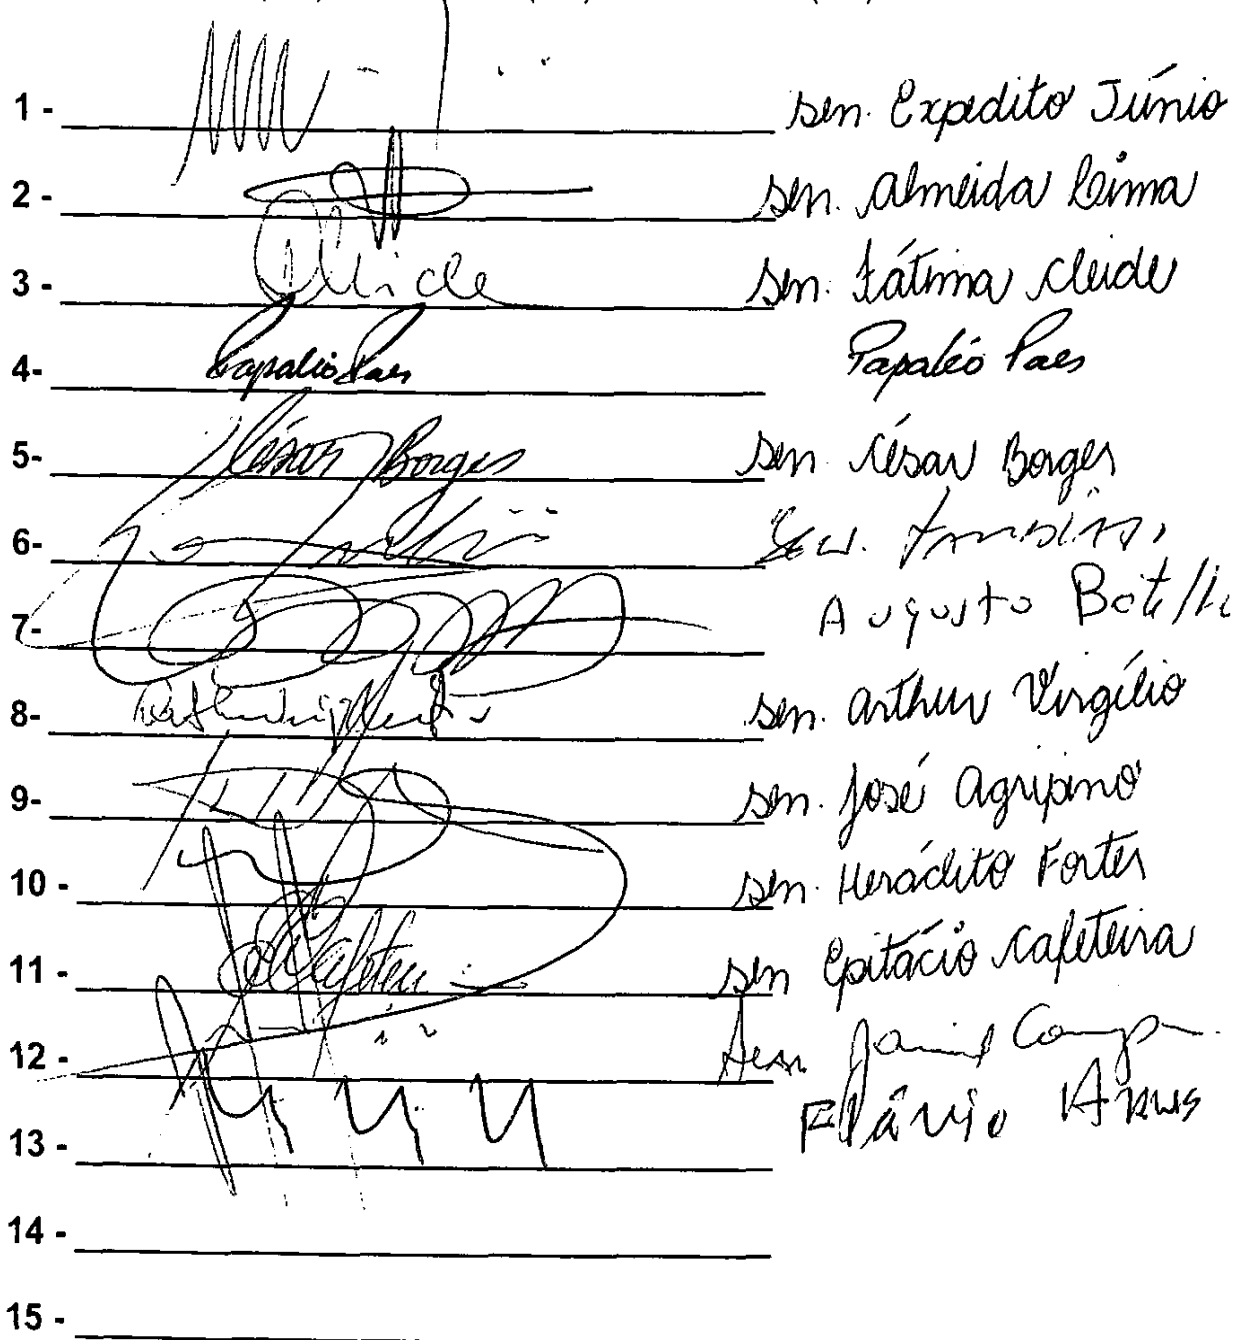 1 - sen. Expedito Júnio
2 - sen. Almeida Lima
3 - Cleide sen. Fátima Cleide
4- Papaléo Paes Papaléo Paes
5- César Borges sen. César Borges
6- Sen.
7- Augusto Botelh
8- sen. Arthur Virgílio
9- sen. José Agripino
10 - sen. Heráclito Fortes
11 - Cafeteira sen Epitácio Cafeteira
12 - Sen. Jaime Camp
13 - Flávio Arns
14 -
15 -